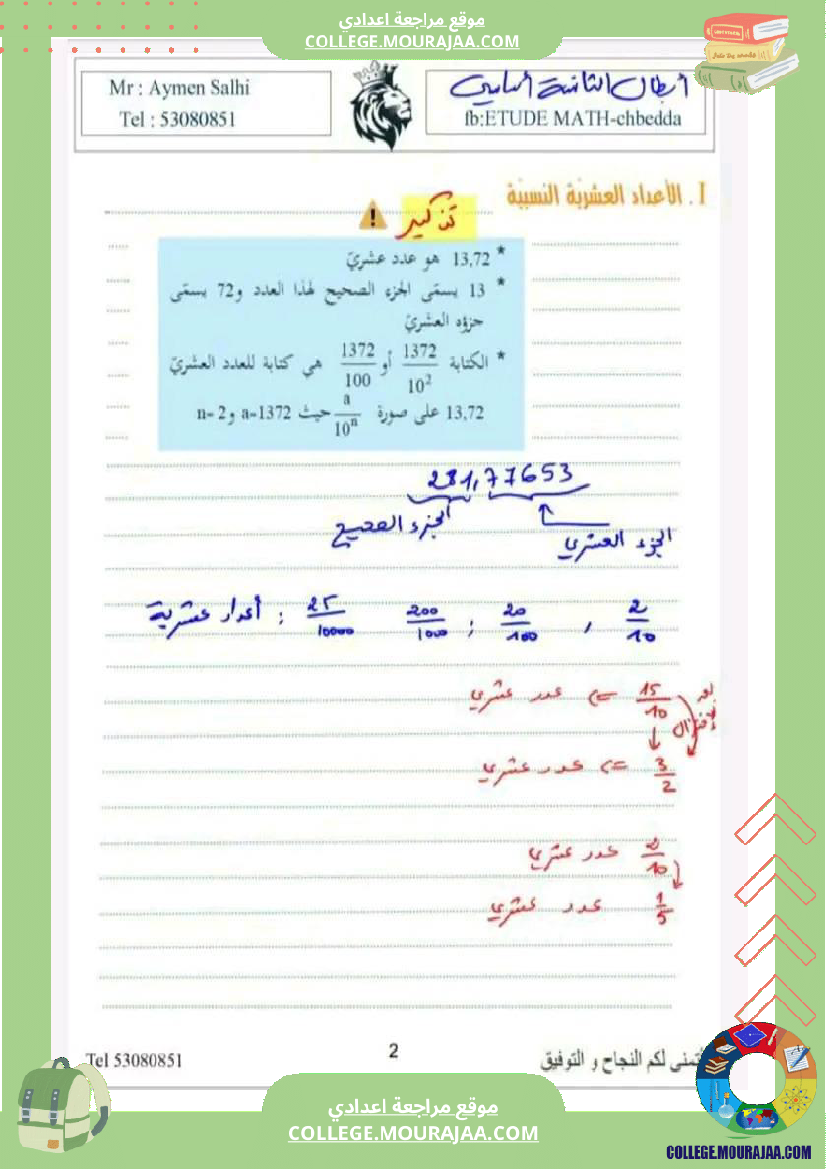 موقع مراجعة اعدادي
COLLEGE.MOURAJAA.COM
Mr : Aymen Salhi
Tel : 53080851
أبطال الثامنة أساسي
fb:ETUDE MATH-chbedda
I. الأعداد العشريّة النسبيّة
تذكير
* 13,72 هو عدد عشريّ
* 13 يسمّى الجزء الصحيح لهذا العدد و72 يسمّى
جزؤه العشريّ
* الكتابة 1372/10² أو 1372/100 هي كتابة للعدد العشريّ
13,72 على صورة a/10ⁿ حيث a=1372 و n=2
281,77653
الجزء الصحيح
الجزء العشري
2/10 , 20/100 ; 200/1000 25/10000 : أعداد عشرية
15/10 <= عدد عشري
بعد
إختزال
3/2 <= عدد عشري
2/10 عدد عشري
1/5 عدد عشري
Tel 53080851
2
أتمنى لكم النجاح و التوفيق
موقع مراجعة اعدادي
COLLEGE.MOURAJAA.COM
COLLEGE.MOURAJAA.COM